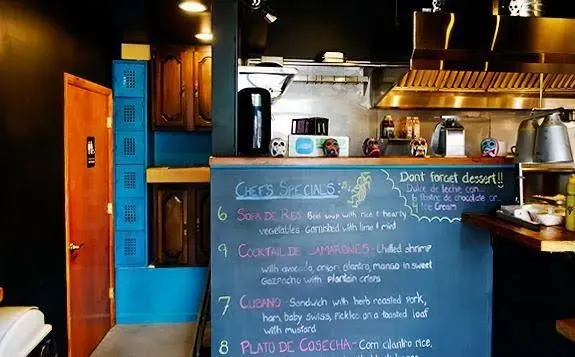 CHEF'S SPECIALS:
6 SOPA DE RES- Beef soup with rice & hearty
vegetables garnished with lime & mint
9 COCKTAIL DE CAMARONES- Chilled shrimp
with avocado, onion, cilantro, mango in sweet
Gazpacho with Plantain crisps
7 CUBANO- Sandwich with herb roasted pork,
ham, baby swiss, pickles on a toasted loaf
with mustard
8 PLATO DE COSECHA- Corn cilantro rice,
Dont forget dessert!!
Dulce de leche con...
6 Postre de chocolate or...
4 Ice Cream